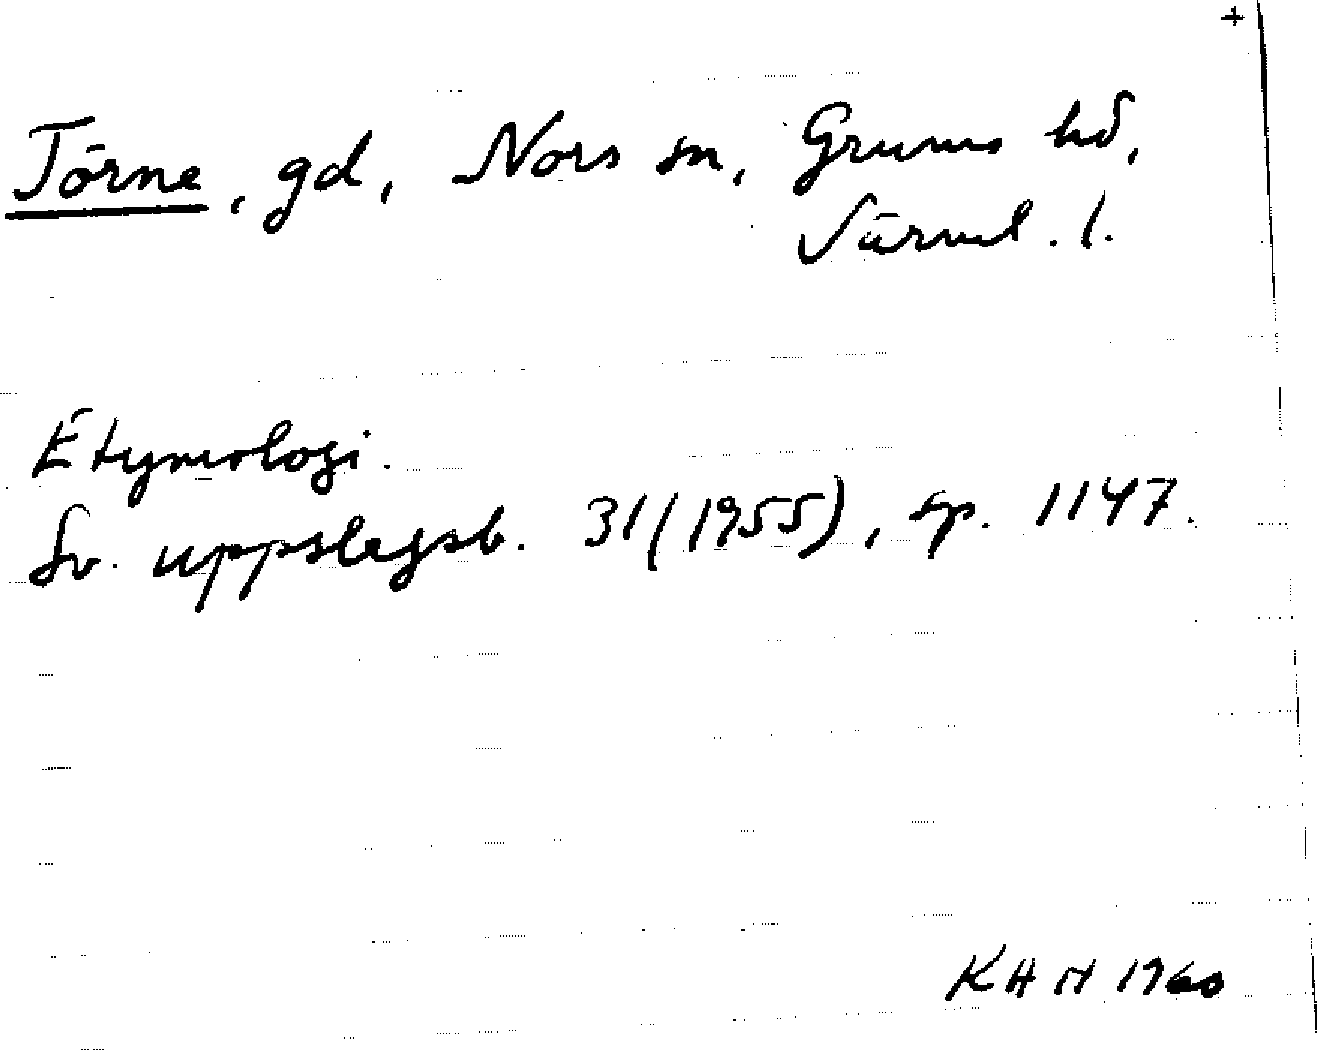 +
Törne, gd, Nors sn, Grums hd,
Värml. l.
Etymologi.
Sv. uppslagsb. 31 (1955), sp. 1147.
KHN 1960